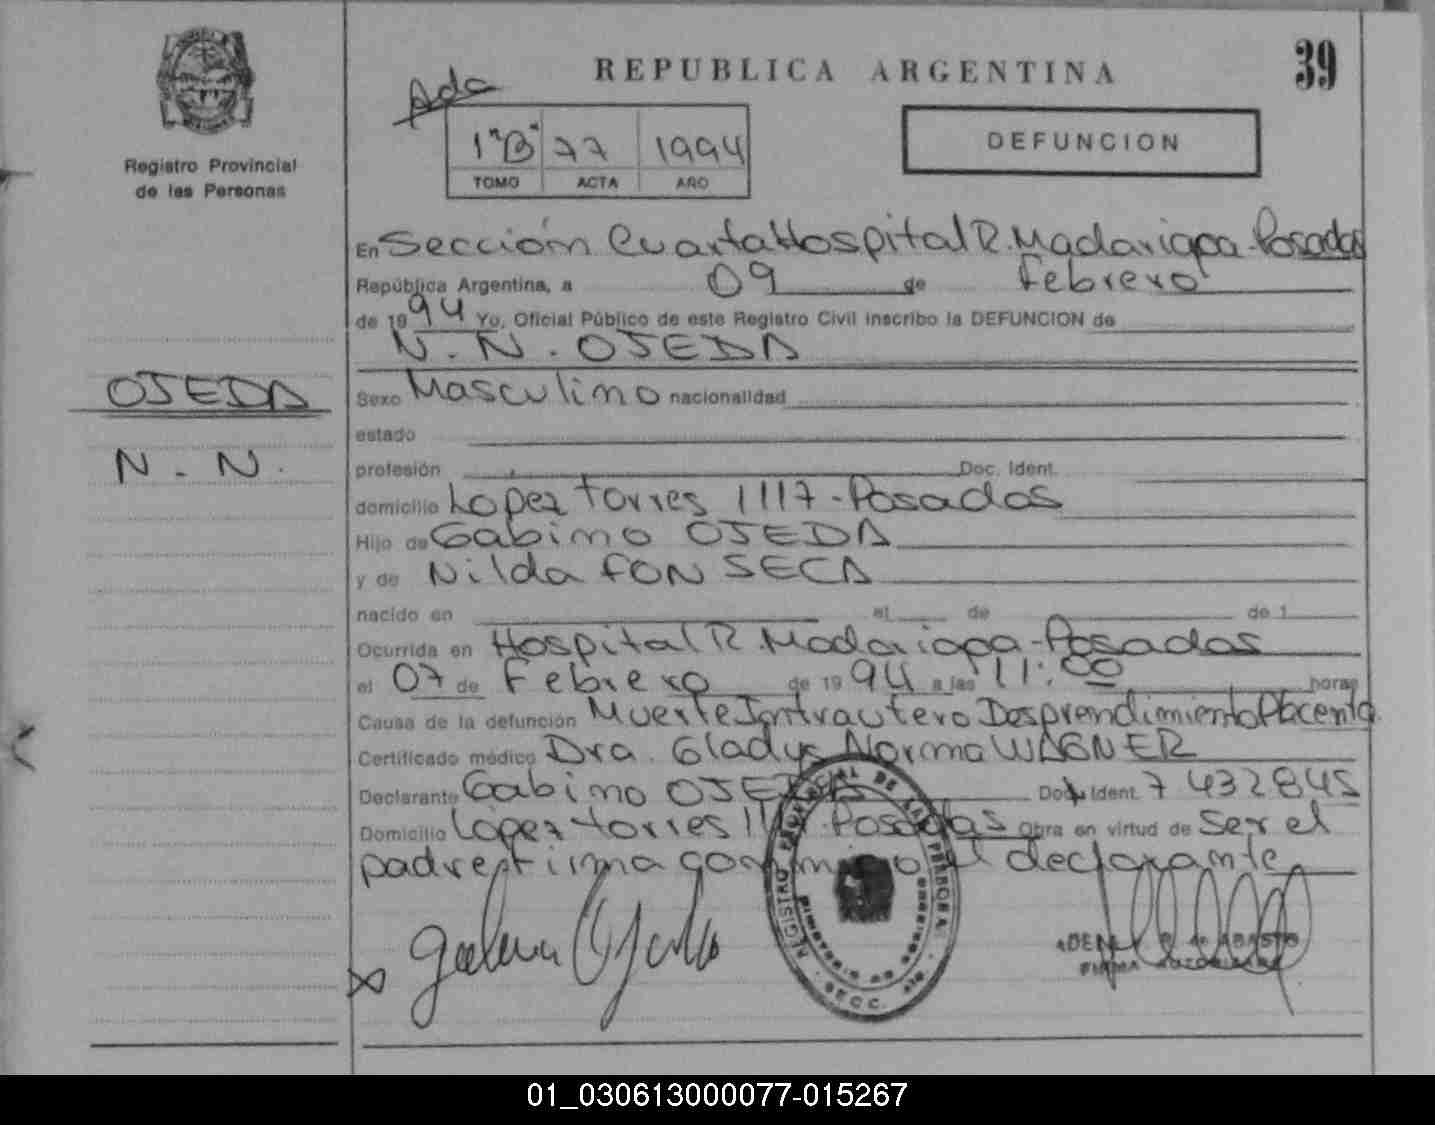 39
REPUBLICA ARGENTINA
Ada
1"B" 77 1994
TOMO ACTA AÑO
DEFUNCION
Registro Provincial
de las Personas
OJEDA
N - N.
En Sección Cuarta Hospital R. Madariaga - Posadas
República Argentina, a 09 de Febrero
de 1994 Yo, Oficial Público de este Registro Civil inscribo la DEFUNCION de
N. N. OJEDA
Sexo Masculino nacionalidad
estado
profesión Doc. Ident.
domicilio Lopez Torres 1117 - Posadas
Hijo de Gabino OJEDA
y de Nilda FONSECA
nacido en el de de 1
Ocurrida en Hospital R. Madariaga - Posadas
el 07 de Febrero de 1994 a las 11:00 horas
Causa de la defunción Muerte Intrautero Desprendimiento Placenta
Certificado médico Dra. Gladys Norma WAGNER
Declarante Gabino OJEDA Doc. Ident. 7 432845
Domicilio Lopez Torres 1117 - Posadas Obra en virtud de Ser el
padre firma conmigo el declarante
REGISTRO PROVINCIAL DE LAS PERSONAS
SECC.
01_030613000077-015267